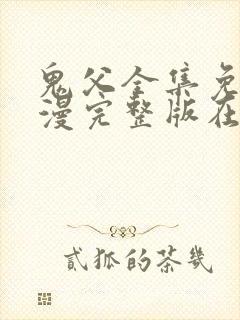 鬼父全集免
漫完整版在
貳狐的茶幾